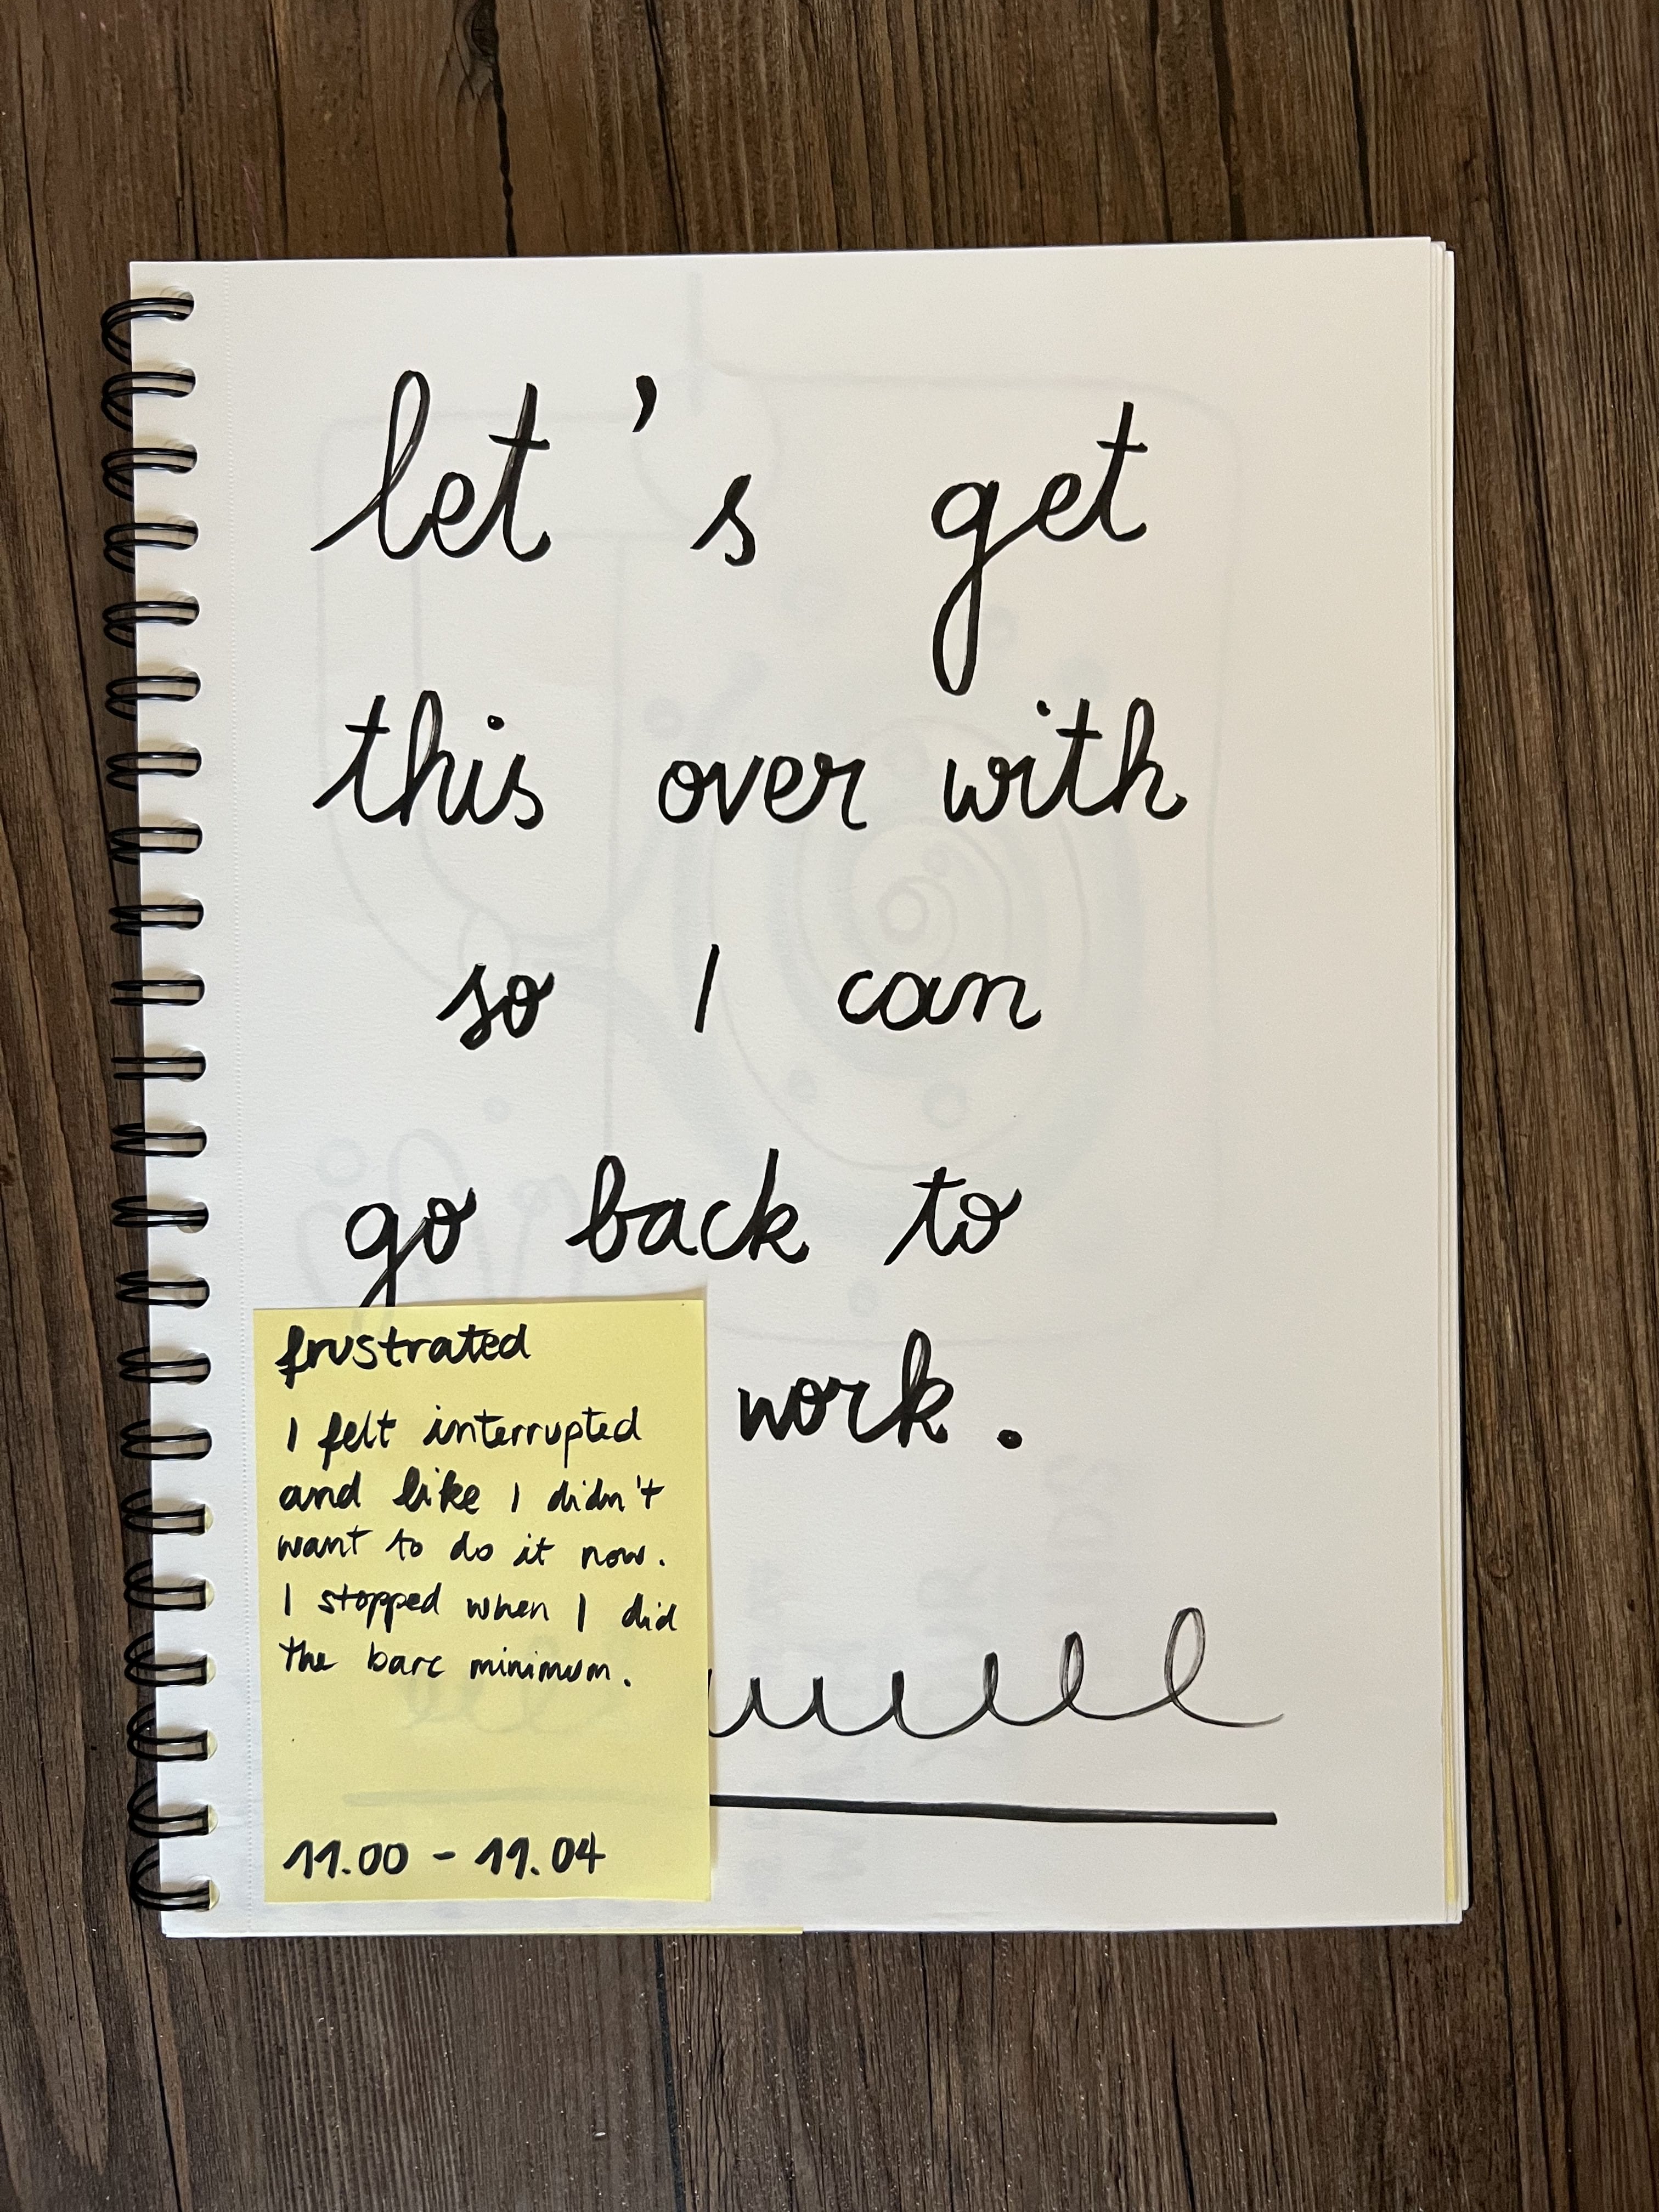 let's get
this over with
so I can
go back to
work.
frustrated
I felt interrupted
and like I didn't
want to do it now.
I stopped when I did
the bare minimum.
11.00 - 11.04